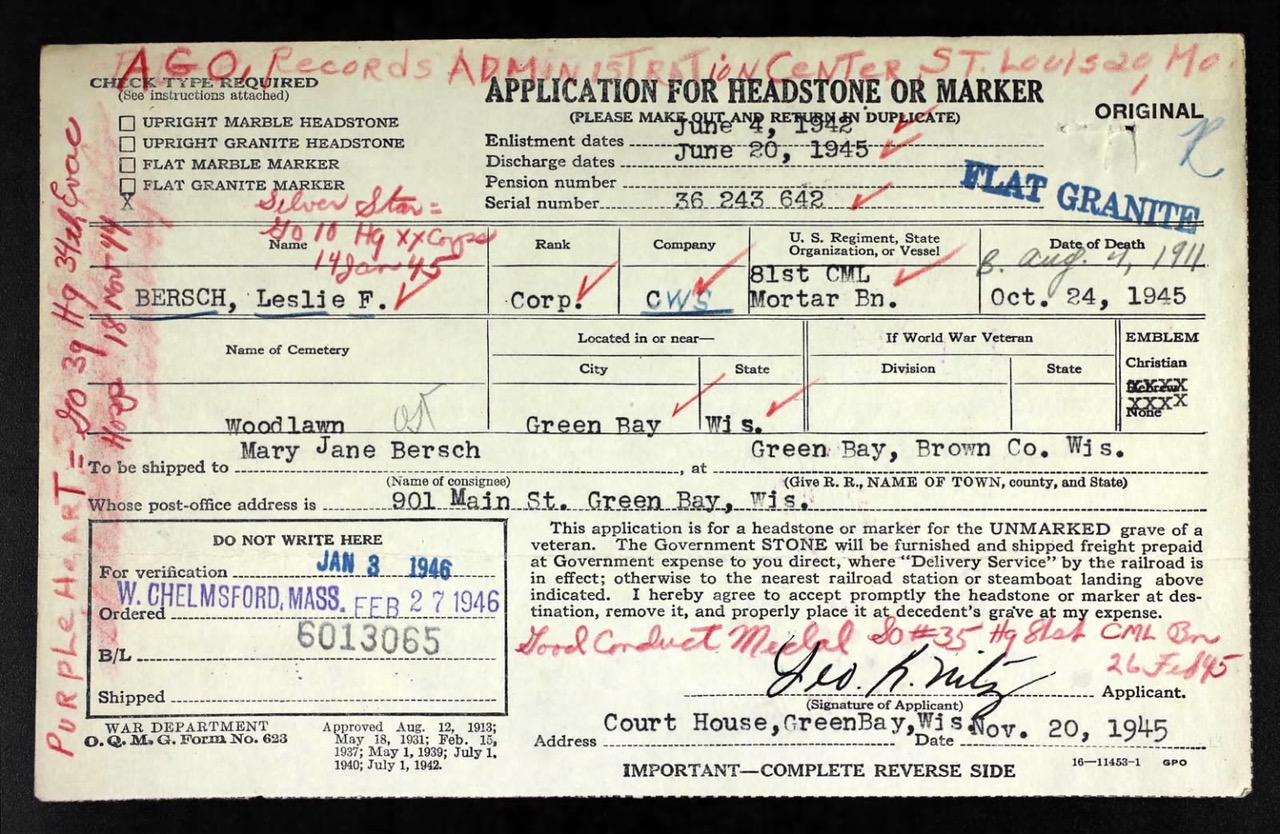 AGO, Records ADMINISTRATION CENTER ST. Louis 20, Mo
CHECK TYPE REQUIRED
(See instructions attached)
UPRIGHT MARBLE HEADSTONE
UPRIGHT GRANITE HEADSTONE
FLAT MARBLE MARKER
FLAT GRANITE MARKER
X
APPLICATION FOR HEADSTONE OR MARKER
(PLEASE MAKE OUT AND RETURN IN DUPLICATE)
ORIGINAL
Enlistment dates June 4, 1942
Discharge dates June 20, 1945
Pension number
Serial number 36 243 642
FLAT GRANITE
R
Silver Star =
GO 10 Hq XX Corps
14 Jan 45
PURPLE HEART = GO 39 Hq 34th Evac
Hosp 18 Nov 44
Name
Rank
Company
U. S. Regiment, State
Organization, or Vessel
Date of Death
B. Aug. 4, 1911
BERSCH, Leslie F.
Corp.
CWS
81st CML
Mortar Bn.
Oct. 24, 1945
Name of Cemetery
Located in or near—
City
State
If World War Veteran
Division
State
EMBLEM
Christian
Hebrew
XXXX
None
Woodlawn
Green Bay
Wis.
To be shipped to Mary Jane Bersch, at Green Bay, Brown Co. Wis.
(Name of consignee)
(Give R. R., NAME OF TOWN, county, and State)
Whose post-office address is 901 Main St. Green Bay, Wis.
DO NOT WRITE HERE
For verification JAN 3 1946
W. CHELMSFORD, MASS.
Ordered FEB 27 1946
6013065
B/L
Shipped
This application is for a headstone or marker for the UNMARKED grave of a
veteran. The Government STONE will be furnished and shipped freight prepaid
at Government expense to you direct, where “Delivery Service” by the railroad is
in effect; otherwise to the nearest railroad station or steamboat landing above
indicated. I hereby agree to accept promptly the headstone or marker at des-
tination, remove it, and properly place it at decedent's grave at my expense.
Good Conduct Medal SO #35 Hq 81st CML Bn
26 Feb 45
Geo. K. Nitz Applicant.
(Signature of Applicant)
Address Court House, GreenBay, Wis. Date Nov. 20, 1945
WAR DEPARTMENT
O. Q. M. G. Form No. 623
Approved Aug. 12, 1913;
May 18, 1931; Feb. 15,
1937; May 1, 1939; July 1,
1940; July 1, 1942.
IMPORTANT—COMPLETE REVERSE SIDE
16—11453-1 GPO